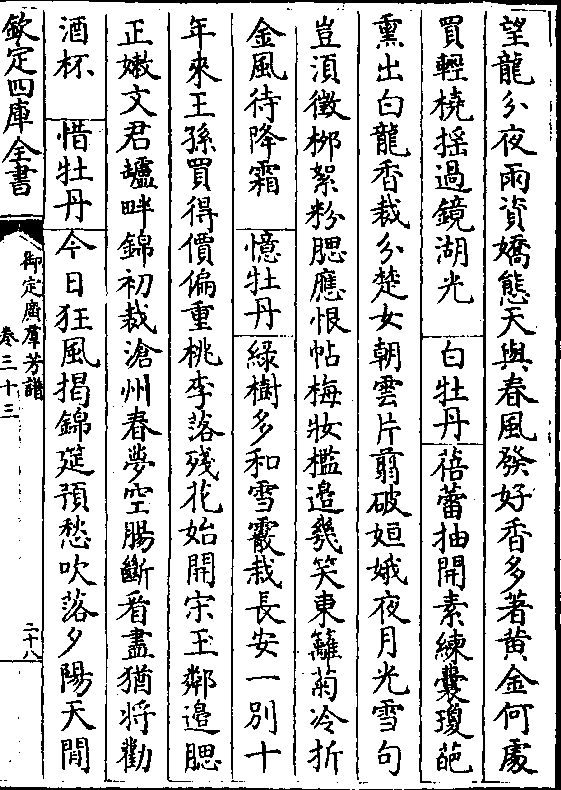 望龍分夜雨資嬌態天與春風發好香多著黄金何處
買輕橈揺過鏡湖光　白牡丹　蓓蕾抽開素練囊瓊葩
熏出白龍香裁分楚女朝雲片翦破姮娥夜月光雪句
豈湏徵栁絮粉腮應恨帖梅妝檻邉㡬笑東籬菊冷折
金風待降霜　憶牡丹　緑樹多和雪霰栽長安一別十
年來王孫買得價偏重桃李落殘花始開宋玉鄰邉腮
正嫩文君壚畔錦初裁滄州春夢空腸斷看盡猶将勸
酒杯　惜牡丹　今日狂風揭錦筵預愁吹落夕陽天閒
欽定四庫全書
御定廣羣芳譜
卷三十三
二十八